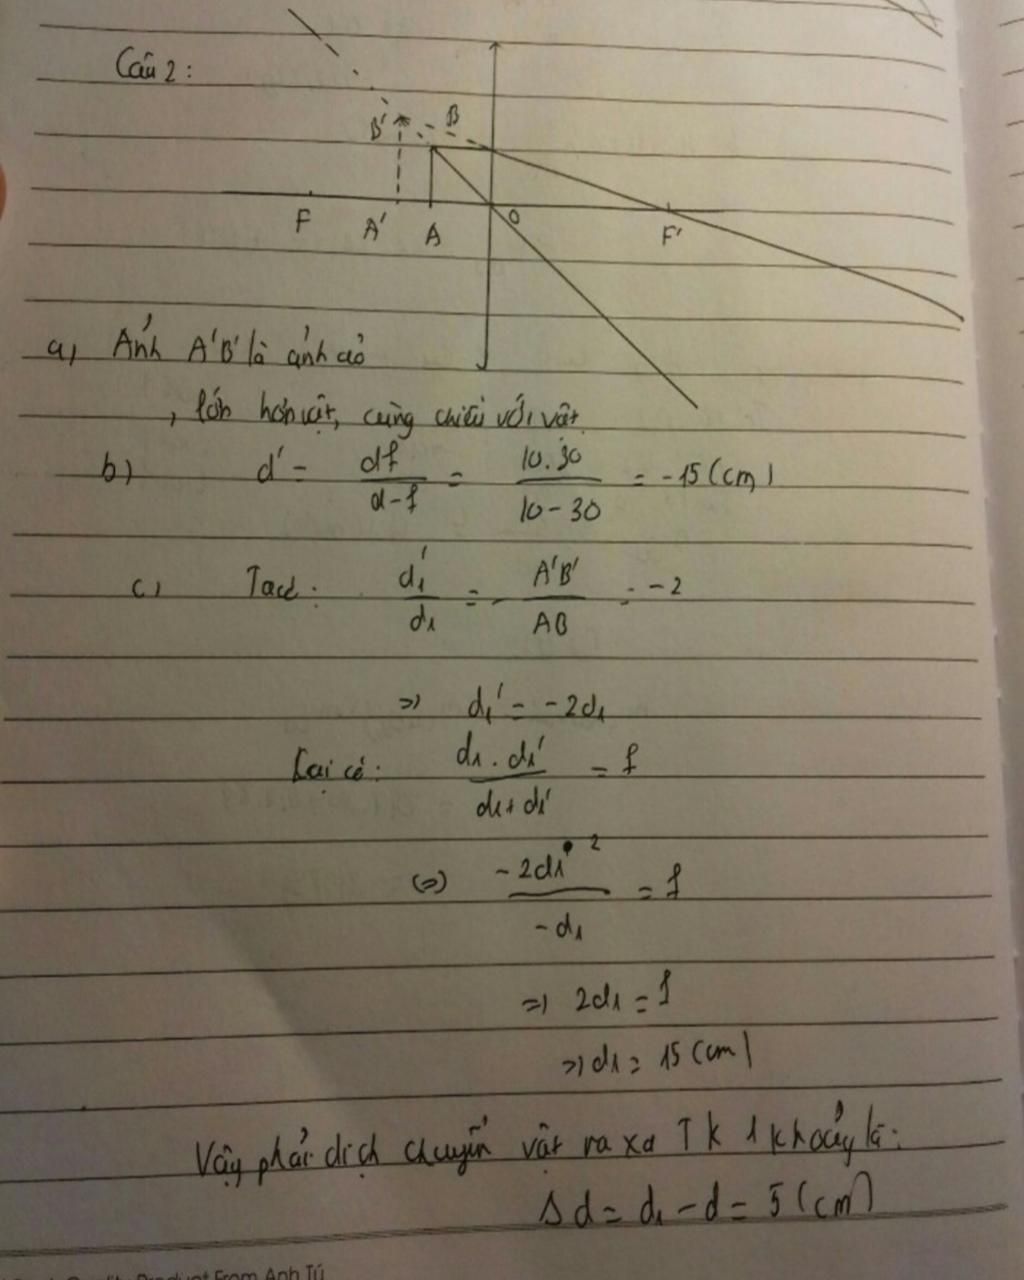 Câu 2:
B' B
F A' A O F'
a, Ảnh A'B' là ảnh ảo
, lớn hơn vật, cùng chiều với vật.
b) d' = df/d-f = 10.30/10-30 = -15 (cm)
c, Ta có: d₁'/d₁ = - A'B'/AB = -2
=> d₁' = -2d₁
Lại có: d₁.d₁'/d₁+d₁' = f
(=>) -2d₁²/-d₁ = f
=> 2d₁ = f
=> d₁ = 15 (cm)
Vậy phải dịch chuyển vật ra xa TK 1 khoảng là:
Δd = d₁ - d = 5 (cm)
Product From Anh Tú